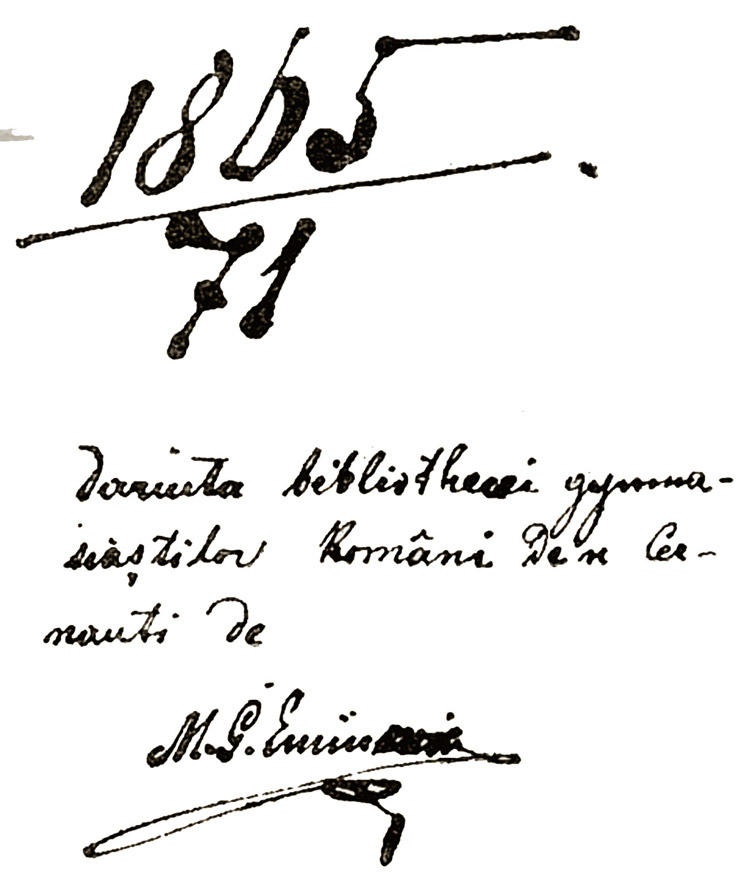 1865.
71
Daruita bibliothecei gymna-
siaștilor Români Den Cer-
nauti de
M. G. Eminovici